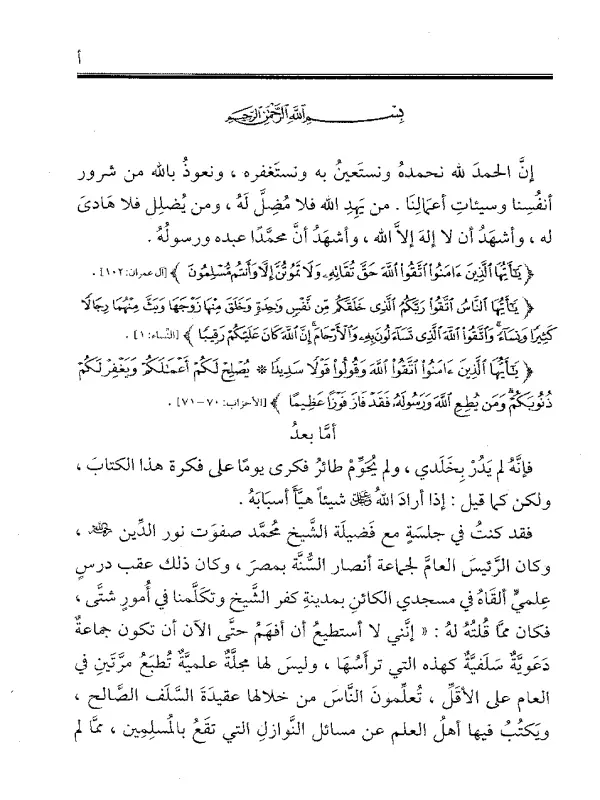 أ
بِسْمِ اللَّهِ الرَّحْمَنِ الرَّحِيمِ
إنَّ الحمدَ لله نحمدهُ ونستعينُ به ونستغفره ، ونعوذُ بالله من شرور
أنفُسِنا وسيئاتِ أعمالِنَا . من يَهدِ الله فلا مُضِلَّ لَهُ ، ومن يُضلِل فلا هادىَ
له ، وأشهَدُ أن لا إلهَ إلاَّ الله ، وأشهدُ أنَّ محمَّدًا عبده ورسولُهُ .
﴿ يَٰٓأَيُّهَا ٱلَّذِينَ ءَامَنُوا۟ ٱتَّقُوا۟ ٱللَّهَ حَقَّ تُقَاتِهِۦ وَلَا تَمُوتُنَّ إِلَّا وَأَنتُم مُّسْلِمُونَ ﴾ [آل عمران: ١٠٢] .
﴿ يَٰٓأَيُّهَا ٱلنَّاسُ ٱتَّقُوا۟ رَبَّكُمُ ٱلَّذِى خَلَقَكُم مِّن نَّفْسٍ وَٰحِدَةٍ وَخَلَقَ مِنْهَا زَوْجَهَا وَبَثَّ مِنْهُمَا رِجَالًا
كَثِيرًا وَنِسَآءً ۚ وَٱتَّقُوا۟ ٱللَّهَ ٱلَّذِى تَسَآءَلُونَ بِهِۦ وَٱلْأَرْحَامَ ۚ إِنَّ ٱللَّهَ كَانَ عَلَيْكُمْ رَقِيبًا ﴾ [النساء: ١] .
﴿ يَٰٓأَيُّهَا ٱلَّذِينَ ءَامَنُوا۟ ٱتَّقُوا۟ ٱللَّهَ وَقُولُوا۟ قَوْلًا سَدِيدًا * يُصْلِحْ لَكُمْ أَعْمَٰلَكُمْ وَيَغْفِرْ لَكُمْ
ذُنُوبَكُمْ ۗ وَمَن يُطِعِ ٱللَّهَ وَرَسُولَهُۥ فَقَدْ فَازَ فَوْزًا عَظِيمًا ﴾ [الأحزاب: ٧٠-٧١] .
أمَّا بعدُ
فإنَّهُ لم يَدُرْ بِخَلَدي ، ولم يُحَوِّمْ طائرُ فكرى يومًا على فكرة هذا الكتابَ ،
ولكن كما قيل : إذا أرادَ اللهُ ﷻ شيئاً هيَّأ أسبَابَهُ .
فقد كنتُ في جلسَةٍ مع فَضيلَة الشَّيخ مُحمَّد صفوَت نور الدِّين رحمه الله ،
وكان الرَّئيسَ العامَّ لجماعة أنصار السُّنَّة بمصرَ ، وكان ذلك عقب درسٍ
عِلميٍّ ألقَاهُ في مسجدي الكائنِ بمدينةِ كفر الشَّيخ وتكلَّمنا في أُمورٍ شتَّى ،
فكان ممَّا قُلتُهُ لهُ : « إنَّني لا أستطيعُ أن أفهَمُ حتَّى الآن أن تكون جماعةٌ
دَعَويَّةٌ سَلَفيَّةٌ كهذه التي ترأسُهَا ، وليسَ لها مجلَّةٌ علميَّةٌ تُطبَعُ مرَّتَينِ في
العام على الأقلِّ ، تُعلِّمونَ النَّاسَ من خلالها عقيدَةَ السَّلَف الصَّالح ،
ويَكتُبُ فيها أهلُ العلم عن مسائل النَّوازلِ التي تقَعُ بالمُسلِمين ، ممَّا لم